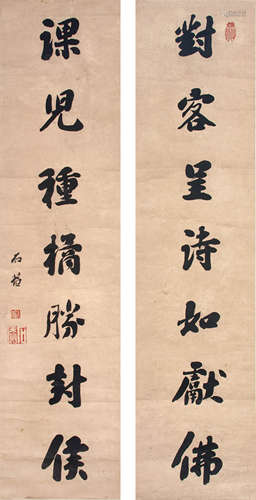 對客呈诗如獻佛
課児種橘勝封侯
石菴